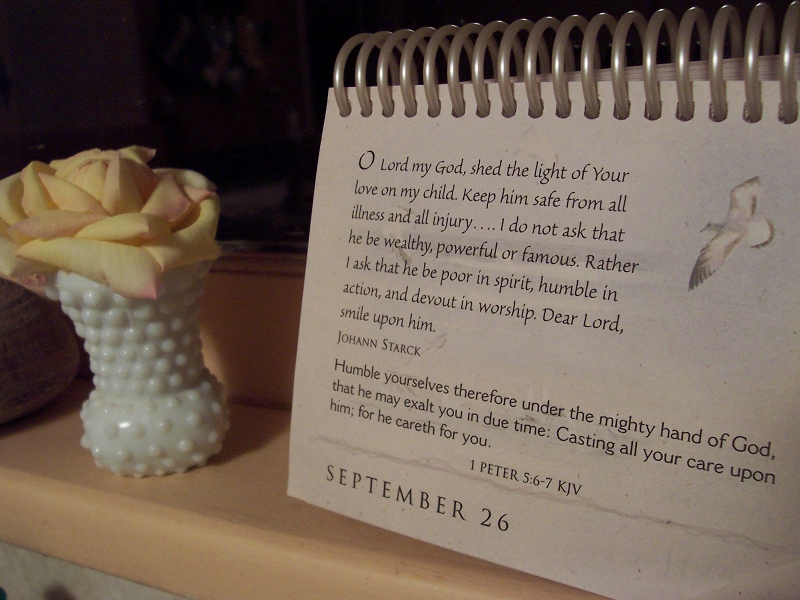 O Lord my God, shed the light of Your
love on my child. Keep him safe from all
illness and all injury.... I do not ask that
he be wealthy, powerful or famous. Rather
I ask that he be poor in spirit, humble in
action, and devout in worship. Dear Lord,
smile upon him.
Johann Starck
Humble yourselves therefore under the mighty hand of God,
that he may exalt you in due time: Casting all your care upon
him; for he careth for you.
1 PETER 5:6-7 KJV
SEPTEMBER 26